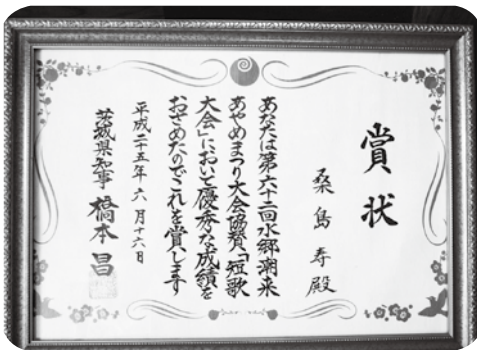 賞状
桑島寿殿
あなたは第六十二回水郷潮来
あやめまつり大会協賛「短歌
大会」において優秀な成績を
おさめたのでこれを賞します
平成二十五年六月十六日
茨城県知事 橋本昌